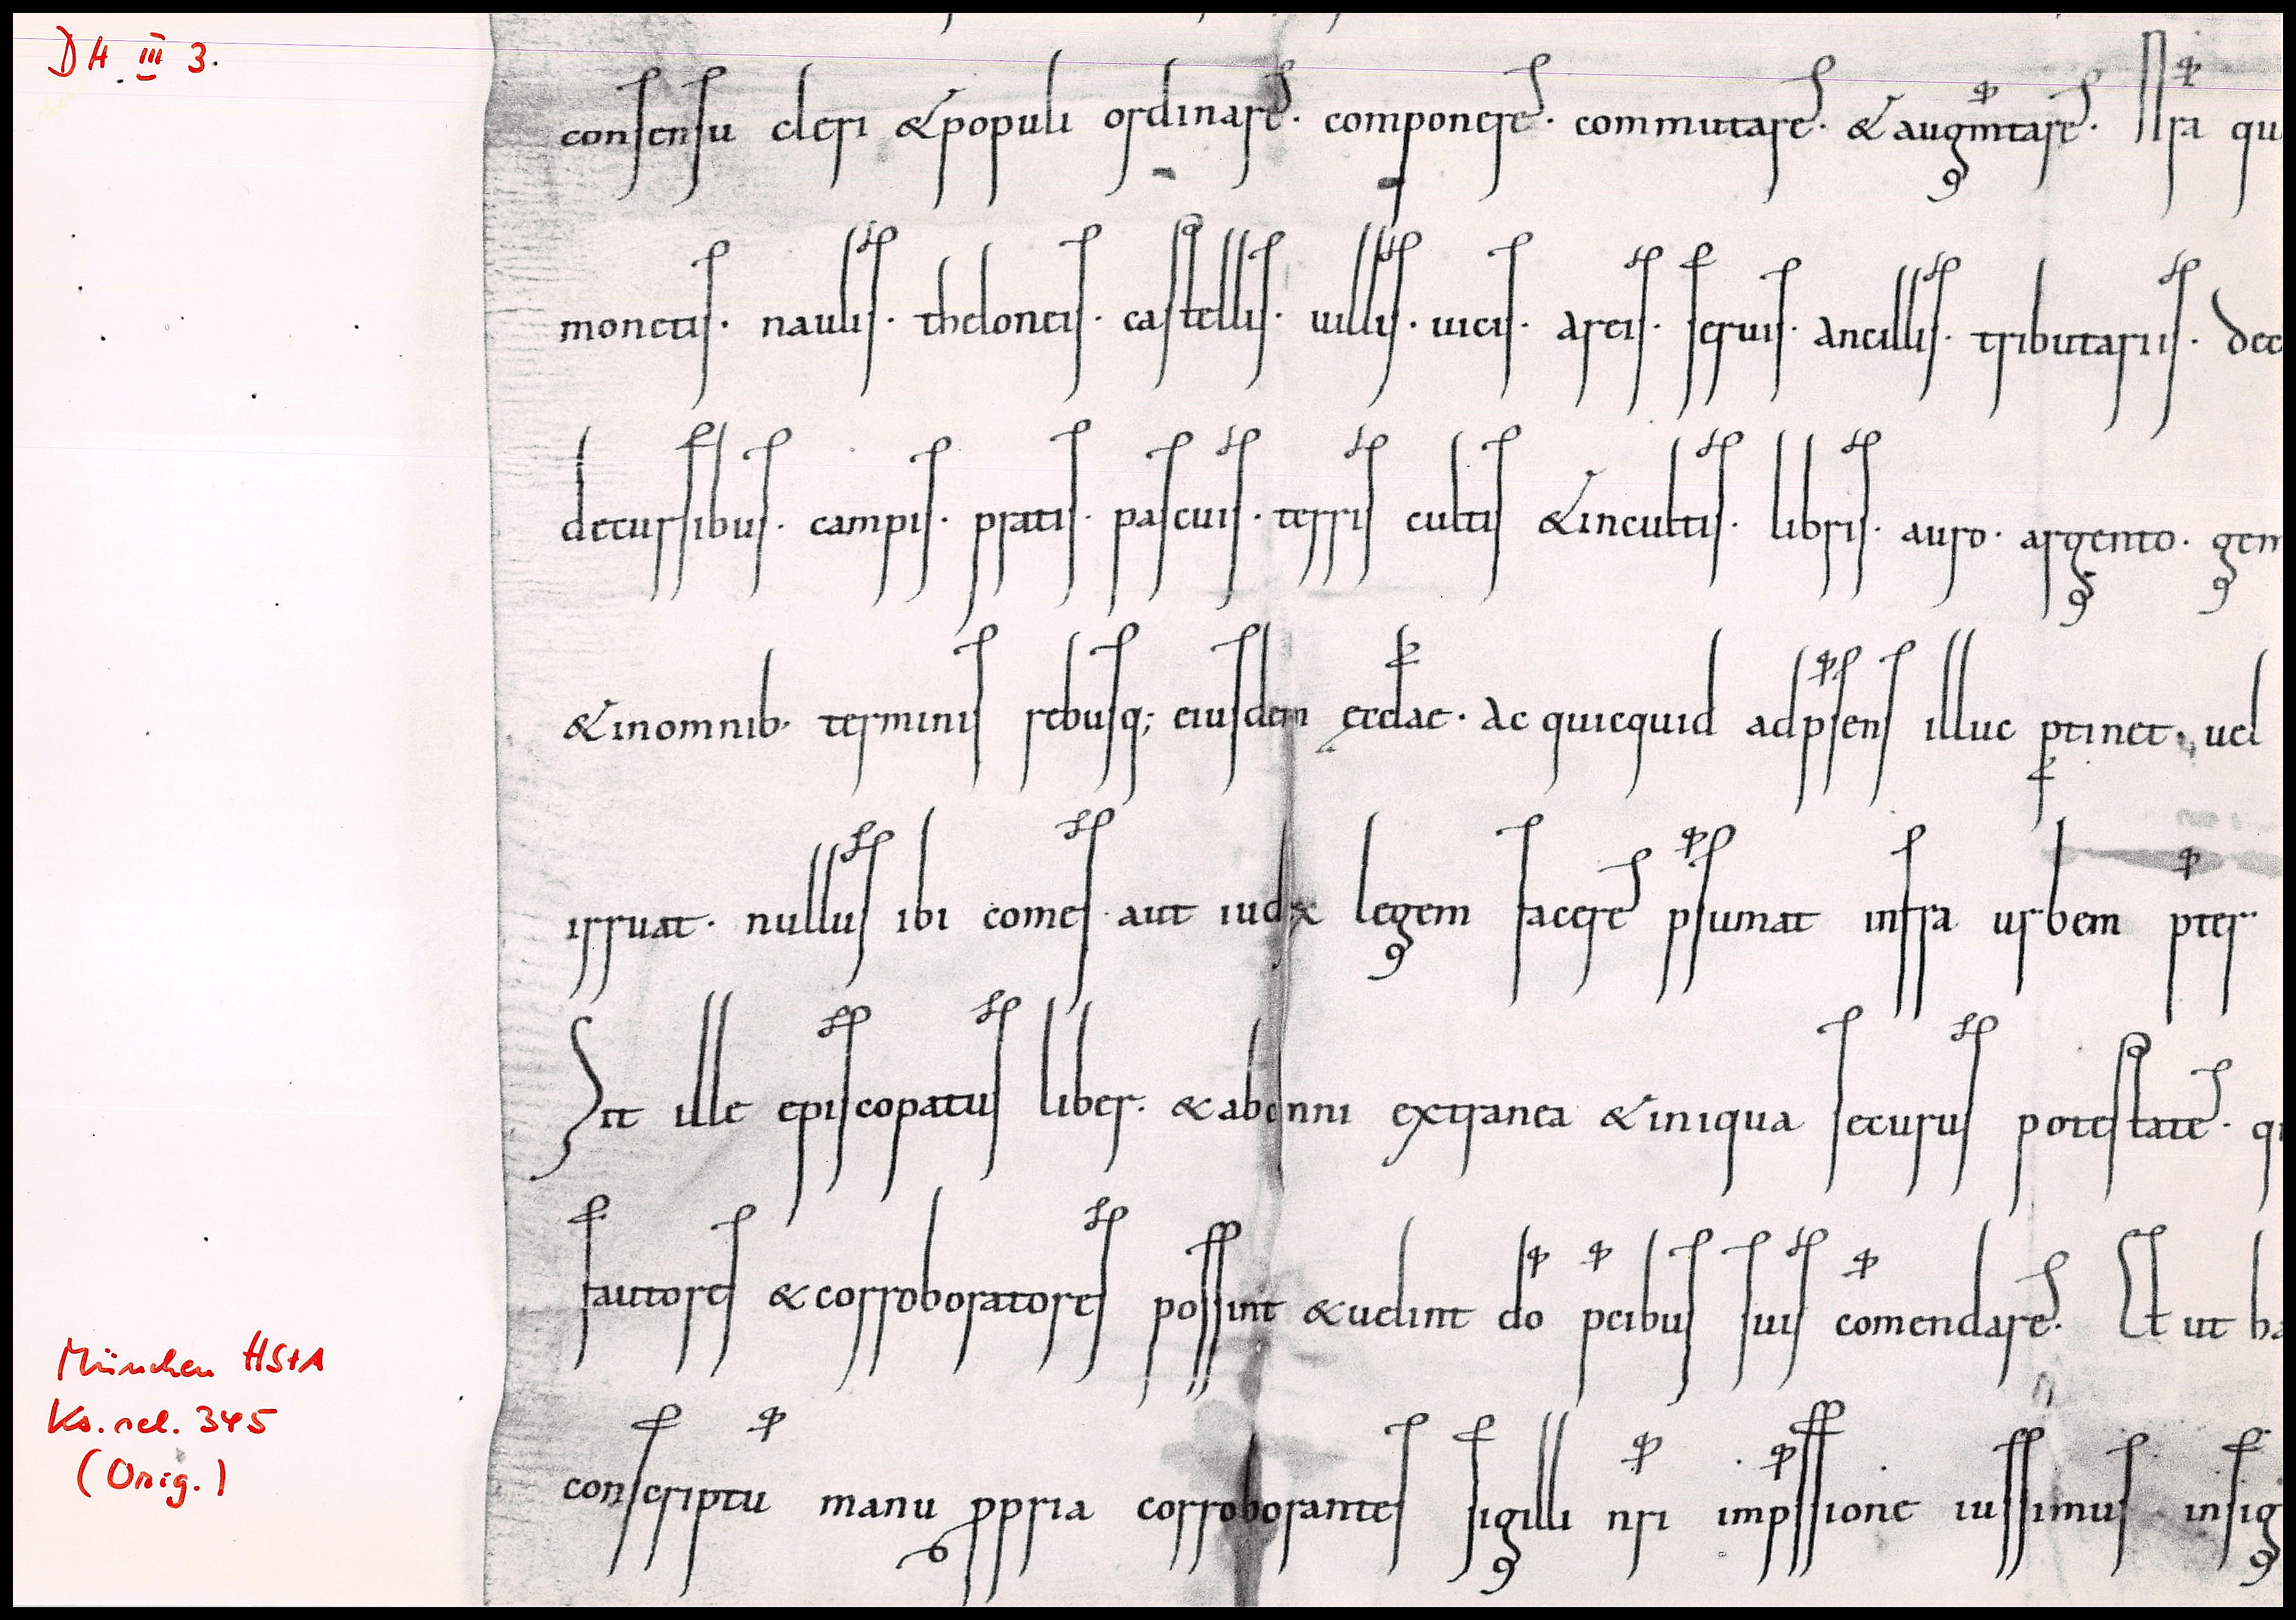 DH III 3.
consensu cleri & populi ordinare. componere. commutare. & augmtare. Nra qu
monetis. naulis. theloneis. castellis. uillis. uicis. areis. seruis. ancillis. tributariis. dec
decursibus. campis. pratis. pascuis. terris cultis & incultis. libris. auro. argento. gem
& in omnib. terminis rebusq; eiusdem ęcclae. ac quicquid ad psens illuc ptinet. uel
irruat. nullus ibi comes aut iudex legem facere psumat infra urbem pter
Sit ille episcopatus liber. & ab omni extranea & iniqua securus potestate. qu
fautores & corroboratores possint & uelint do pcibus suis comendare. Et ut ha
conscriptu manu ppria corroborantes sigilli nri impssione iussimus insig
München HStA
Ks. sel. 345
(Orig.)